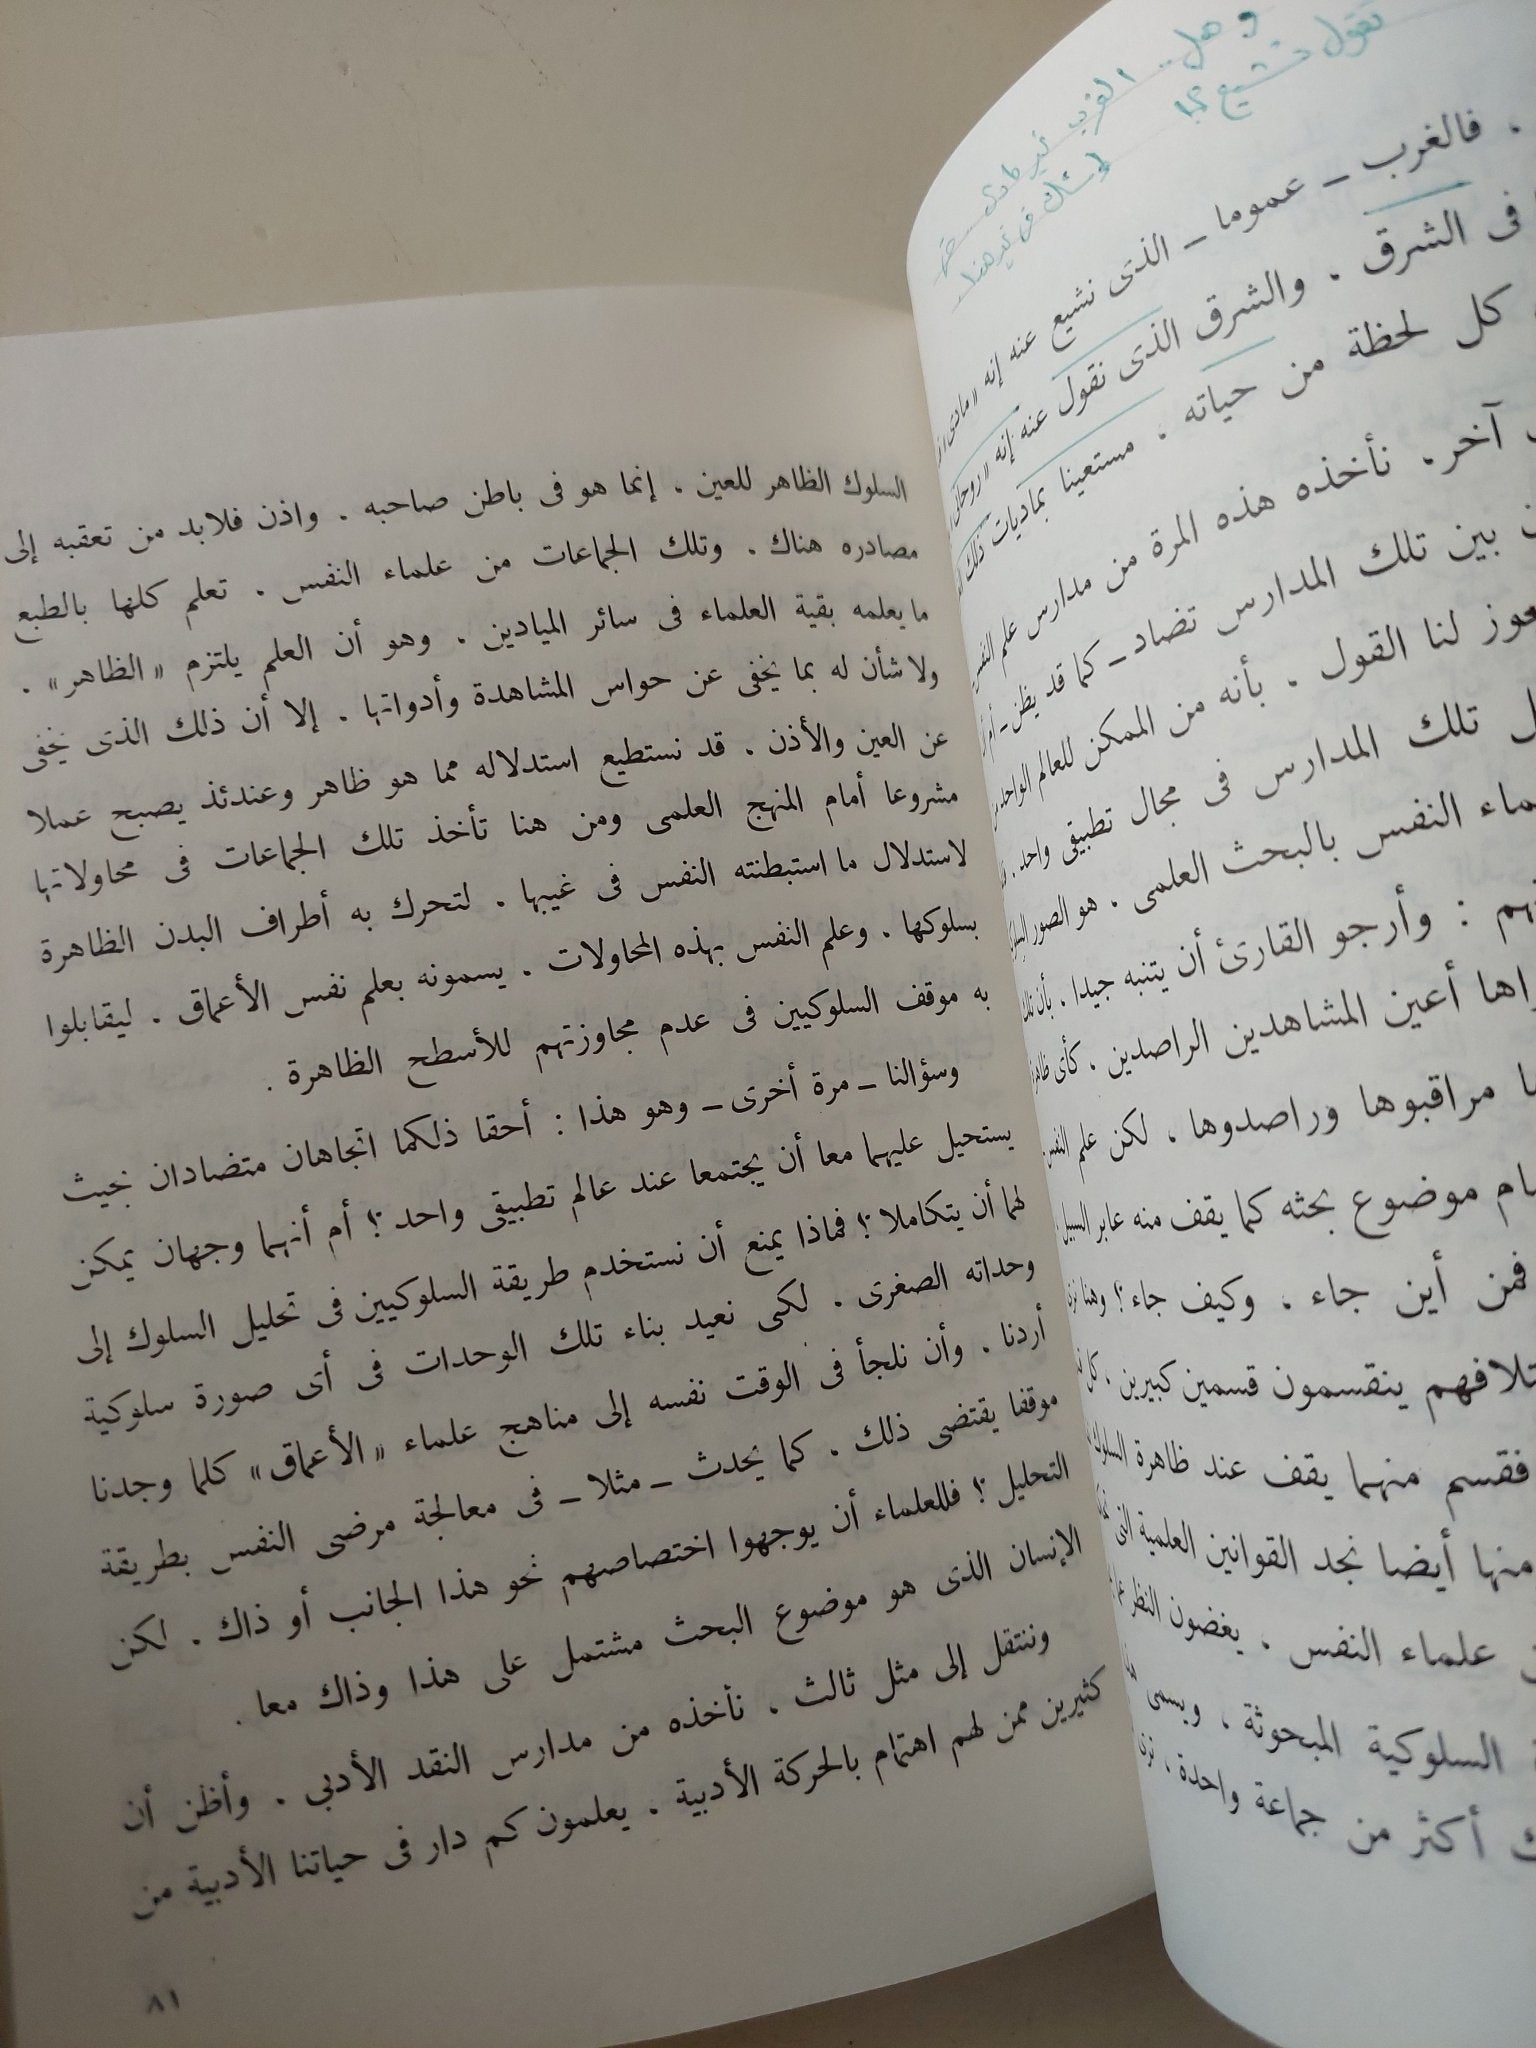 وهل .. الغرب
نقول نشيع
. فالغرب ــ عموما ــ الذى نشيع عنه إنه «مادى
فى الشرق . والشرق الذى نقول عنه إنه «روحانى
كل لحظة من حياته . مستعينا بماديات ذلك
آخر . نأخذه هذه المرة من مدارس علم النفس
بين تلك المدارس تضاد ــ كما قد يظن ــ أم
لنا القول . بأنه من الممكن للعالم الواحد
تلك المدارس فى مجال تطبيقى واحد .
النفس بالبحث العلمى . هو الصور
: وأرجو القارئ أن يتنبه جيدا . بأن تلك
أعين المشاهدين الراصدين . كأى
مراقبوها وراصدوها . لكن علم النفس
موضوع بحثه كما يقف منه عابر السبيل
فمن أين جاء . وكيف جاء ؟ وهنا
ينقسمون قسمين كبيرين . كل
فقسم منهما يقف عند ظاهرة السلوك
منها أيضا نجد القوانين العلمية التى
علماء النفس . يغضون النظر
السلوكية المبحوثة . ويسمى
أكثر من جماعة واحدة .
السلوك الظاهر للعين . إنما هو فى باطن صاحبه . واذن فلابد من تعقبه إلى
مصادره هناك . وتلك الجماعات من علماء النفس . تعلم كلها بالطبع
ما يعلمه بقية العلماء فى سائر الميادين . وهو أن العلم يلتزم «الظاهر» .
ولا شأن له بما يخفى عن حواس المشاهدة وأدواتها . إلا أن ذلك الذى يخفى
عن العين والأذن . قد نستطيع استدلاله مما هو ظاهر وعندئذ يصبح عملا
مشروعا أمام المنهج العلمى ومن هنا تأخذ تلك الجماعات فى محاولاتها
لاستدلال ما استبطنته النفس فى غيبها . لتحرك به أطراف البدن الظاهرة
بسلوكها . وعلم النفس بهذه المحاولات . يسمونه بعلم نفس الأعماق . ليقابلوا
به موقف السلوكيين فى عدم مجاوزتهم للأسطح الظاهرة .
وسؤالنا ــ مرة أخرى ــ وهو هذا : أحقا ذلكما اتجاهان متضادان بحيث
يستحيل عليهما معا أن يجتمعا عند عالم تطبيقى واحد ؟ أم أنهما وجهان يمكن
لهما أن يتكاملا ؟ فماذا يمنع أن نستخدم طريقة السلوكيين فى تحليل السلوك إلى
وحداته الصغرى . لكى نعيد بناء تلك الوحدات فى أى صورة سلوكية
أردنا . وأن نلجأ فى الوقت نفسه إلى مناهج علماء «الأعماق» كلما وجدنا
موقفا يقتضى ذلك . كما يحدث ــ مثلا ــ فى معالجة مرضى النفس بطريقة
التحليل ؟ فللعلماء أن يوجهوا اختصاصهم نحو هذا الجانب أو ذاك . لكن
الإنسان الذى هو موضوع البحث مشتمل على هذا وذاك معا .
وننتقل إلى مثل ثالث . نأخذه من مدارس النقد الأدبى . وأظن أن
كثيرين ممن لهم اهتمام بالحركة الأدبية . يعلمون كم دار فى حياتنا الأدبية من
٨١